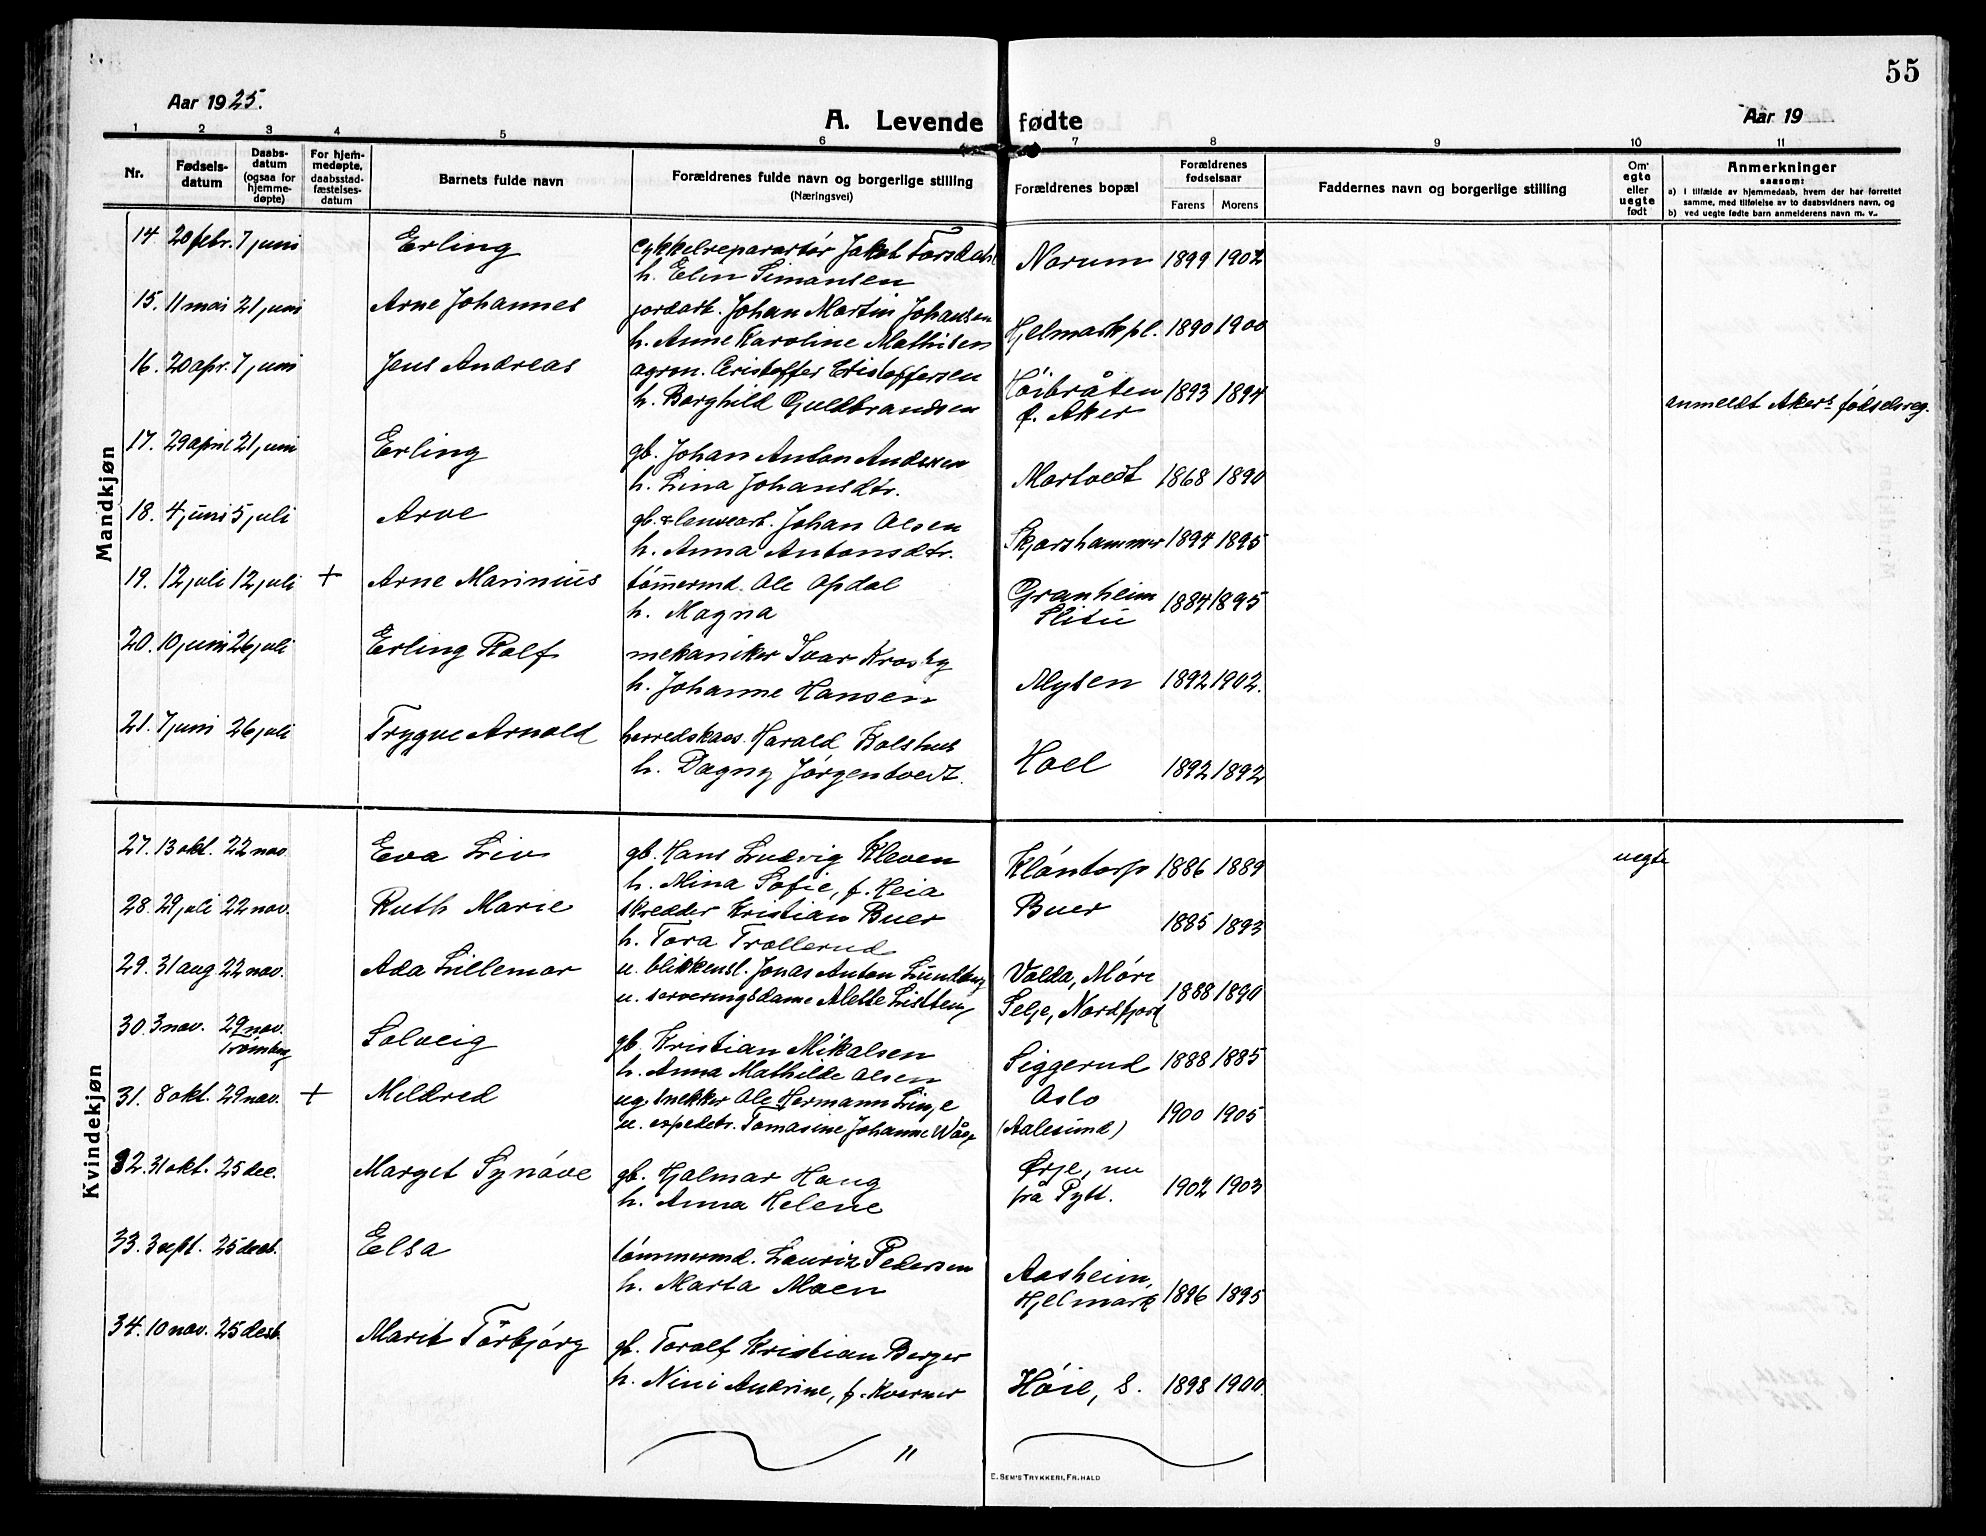 55
Aar 1925.
A. Levende fødte
Aar 19
1 2 3 4 5 6 7 8 9 10 11
Nr.
Fødsels-
datum
Daabs-
datum
(ogsaa for
hjemme-
døpte)
For hjem-
medøpte,
daabsstad-
fæstelses-
datum
Barnets fulde navn
Forældrenes fulde navn og borgerlige stilling
(Næringsvei)
Forældrenes bopæl
Forældrenes
fødselsaar
Farens Morens
Faddernes navn og borgerlige stilling
Om
egte
eller
uegte
født
Anmerkninger
saasom:
a) I tilfælde av hjemmedaab, hvem der har forrettet
samme, med tilføielse av to daabsvidners navn, og
b) ved uegte fødte barn anmelderens navn m. v..
Mandkjøn
14. 20 febr. 7 juni Erling cykkelreparartør Jakob Norum 1899 1902
h. Elin Simansen
15. 11 mai 21 juni Arne Johannes jordarb. Johan Martin Johansen Hjelmark pl. 1890 1900
h. Anne Karoline Mathisen
16. 20 apr. 7 juni Jens Andreas agrm. Cristoffer Høibråten 1893 1894 anmeldt Akers fødselsreg.
h. Borghild Guldbrandsen Ø. Aker
17. 29 april 21 juni Erling gb. Johan Anton Andersen Mortvedt 1868 1890
h. Lina Johansdtr.
18. 4 juni 5 juli Arve gb. & lensearb. Johan Olsen Skjørshammer 1894 1895
h. Anna Antonsdtr.
19. 12 juli 12 juli + Arne Marinius tømermd. Ole Opdal Granheim 1884 1895
h. Magna Slitu
20. 10 juni 26 juli Erling Rolf mekaniker Ivar Krosby Mysen 1892 1902.
h. Johanne Hansen
21. 7 juni 26 juli Trygve Arnold herredskass. Harald Kolshus Hoel 1892 1892
h. Dagny Jørgentvedt.
Kvindekjøn
27. 13 okt. 22 nov Eva Liv gb. Hans Ludvig Kleven Kløntorp 1886 1889 uegte
h. Mina Sofie, f. Heia
28. 29 juli 22 nov. Ruth Marie skredder Kristian Buer Buer 1885 1893
h. Tora Trollerud
29. 31 aug 22 nov. Ada Lillemor u. blikkensl. Jonas Anton Lundberg Volda, Møre 1888 1890
u. serveringsdame Alette Selje, Nordfjord
30. 3 nov. 29 nov. Solveig gb. Kristian Mikalsen Siggerud 1888 1885
Trømborg h. Anna Mathilde Olsen
31. 8 okt. 29 nov. + Mildred ug. snekker Ole Hermann Linje Oslo 1900 1905
u. expedtr. Tomasine Johanne Våge (Aalesund)
32. 31 okt. 25 dec. Marget Synøve gb. Hjalmar Haug Ørje, nu 1902 1903
h. Anna Helene på Pytt.
33. 3 sept. 25 des. Elsa tømmermd. Lauriz Pedersen Aasheim, 1896 1895
h. Marta Moen Hjelmark
34. 10 nov. 25 des. Marit Torbjørg gb. Toralf Kristian Berger Høie, S. 1898 1900.
h. Nini Andrine, f. Kverner
"
E. SEM'S TRYKKERI, FR.HALD